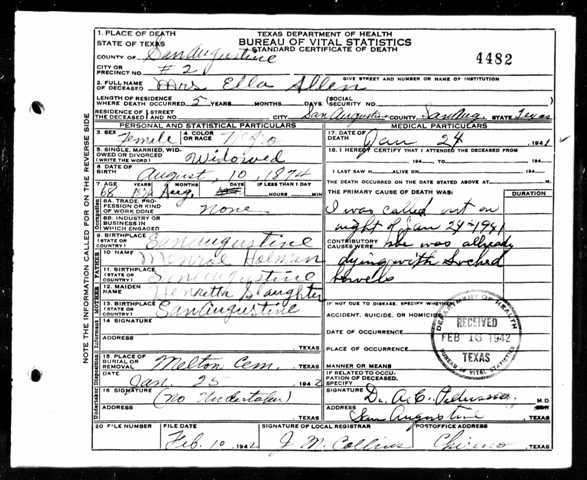 NOTE THE INFORMATION CALLED FOR ON THE REVERSE SIDE
1. PLACE OF DEATH
STATE OF TEXAS
COUNTY OF San Augustine
CITY OR PRECINCT NO. # 2
TEXAS DEPARTMENT OF HEALTH
BUREAU OF VITAL STATISTICS
STANDARD CERTIFICATE OF DEATH
4482
GIVE STREET AND NUMBER OR NAME OF INSTITUTION
2. FULL NAME OF DECEASED Mrs Ella Allen
LENGTH OF RESIDENCE WHERE DEATH OCCURRED 5 YEARS MONTHS DAYS
SOCIAL SECURITY NO.
RESIDENCE OF THE DECEASED STREET AND NO. CITY San Augustine COUNTY SanAug. STATE Texas
PERSONAL AND STATISTICAL PARTICULARS
3. SEX Female
4. COLOR OR RACE
5. SINGLE, MARRIED, WIDOWED OR DIVORCED (WRITE THE WORD) Widowed
6. DATE OF BIRTH August, 10, 1874
7. AGE 68 YEARS MONTHS DAYS IF LESS THAN 1 DAY HOURS MIN
8A. TRADE, PROFESSION OR KIND OF WORK DONE None
8B. INDUSTRY OR BUSINESS IN WHICH ENGAGED
9. BIRTHPLACE (STATE OR COUNTY) San Augustine
10. NAME Monroe Holman
11. BIRTHPLACE (STATE OR COUNTY) San Augustine
12. MAIDEN NAME Henrietta Slaughter
13. BIRTHPLACE (STATE OR COUNTY) San Augustine
14. SIGNATURE
ADDRESS TEXAS
15. PLACE OF BURIAL OR REMOVAL Melton Cem. TEXAS
DATE Jan. 25 1942
16. SIGNATURE (No Undertaker)
ADDRESS TEXAS
MEDICAL PARTICULARS
17. DATE OF DEATH Jan 24 1941
18. I HEREBY CERTIFY THAT I ATTENDED THE DECEASED FROM
194 TO 194
I LAST SAW H ALIVE ON 194
THE DEATH OCCURRED ON THE DATE STATED ABOVE AT M.
THE PRIMARY CAUSE OF DEATH WAS: DURATION
I was called out on
night of Jan 24-1941
CONTRIBUTORY CAUSES WERE she was allready
dying with
bowells
IF NOT DUE TO DISEASE, SPECIFY WHETHER
ACCIDENT, SUICIDE, OR HOMICIDE
DATE OF OCCURRENCE
PLACE OF OCCURRENCE
MANNER OR MEANS
IF RELATED TO OCCUPATION OF DECEASED, SPECIFY
DEPARTMENT OF HEALTH
RECEIVED
FEB 13 1942
TEXAS
BUREAU OF VITAL STATISTICS
SIGNATURE Dr. A.C. M.D.
ADDRESS San Augustine TEXAS
20 FILE NUMBER
FILE DATE Feb. 10 1942
SIGNATURE OF LOCAL REGISTRAR J. M. Collins
POSTOFFICE ADDRESS Chireno, TEXAS